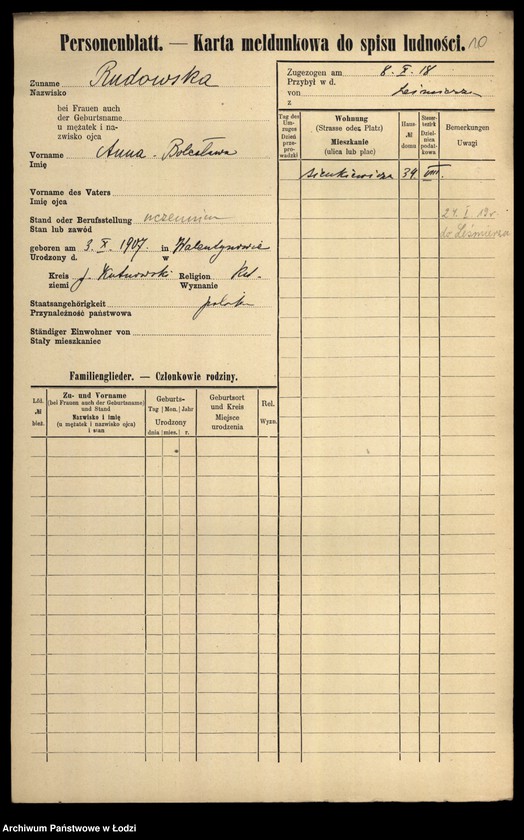 Personenblatt. — Karta meldunkowa do spisu ludności. 20
Zuname Rudowska
Nazwisko
bei Frauen auch
der Geburtsname
u mężatek i na-
zwisko ojca
Vorname Anna Bolesława
Imię
Vorname des Vaters
Imię ojca
Stand oder Berufsstellung uczennica
Stan lub zawód
geboren am 3. X. 1907 in Walentynowie
Urodzony d. w
Kreis j. Kutnowski Religion
ziemi Wyznanie
Staatsangehörigkeit polska
Przynależność państwowa
Ständiger Einwohner von
Stały mieszkaniec
Familienglieder. — Członkowie rodziny.
Lfd. № bież.
Zu- und Vorname
(bei Frauen auch der Geburtsname)
und Stand
Nazwisko i imię
(u mężatek i nazwisko ojca)
i stan
Geburts-
Tag Mon. Jahr
Urodzony
dnia mies. r.
Geburtsort
und Kreis
Miejsce
urodzenia
Rel.
Wyzn.
Zugezogen am 8. X. 18
Przybył w d.
von Leśmierza
z
Tag des
Um-
zuges
Dzień
prze-
prowadzki
Wohnung
(Strasse oder Platz)
Mieszkanie
(ulica lub plac)
Haus-
№
domu
Steuer-
bezirk
Dziel-
nica
podat-
kowa
Bemerkungen
Uwagi
Sienkiewicza 34 VIII
24. I 19
do Leśmierza
Archiwum Państwowe w Łodzi